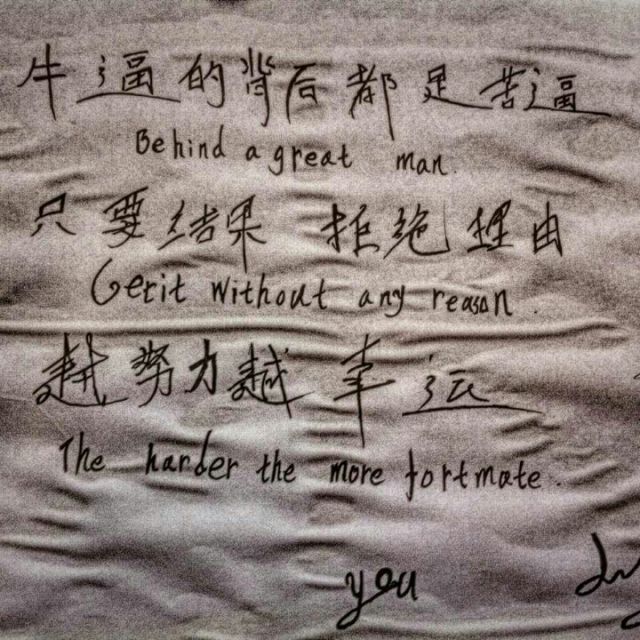 牛逼的背后都是苦逼
Behind a great man.
只要结果 拒绝理由
Gerit without any reason.
越努力越幸运
The harder the more fortmate.
you